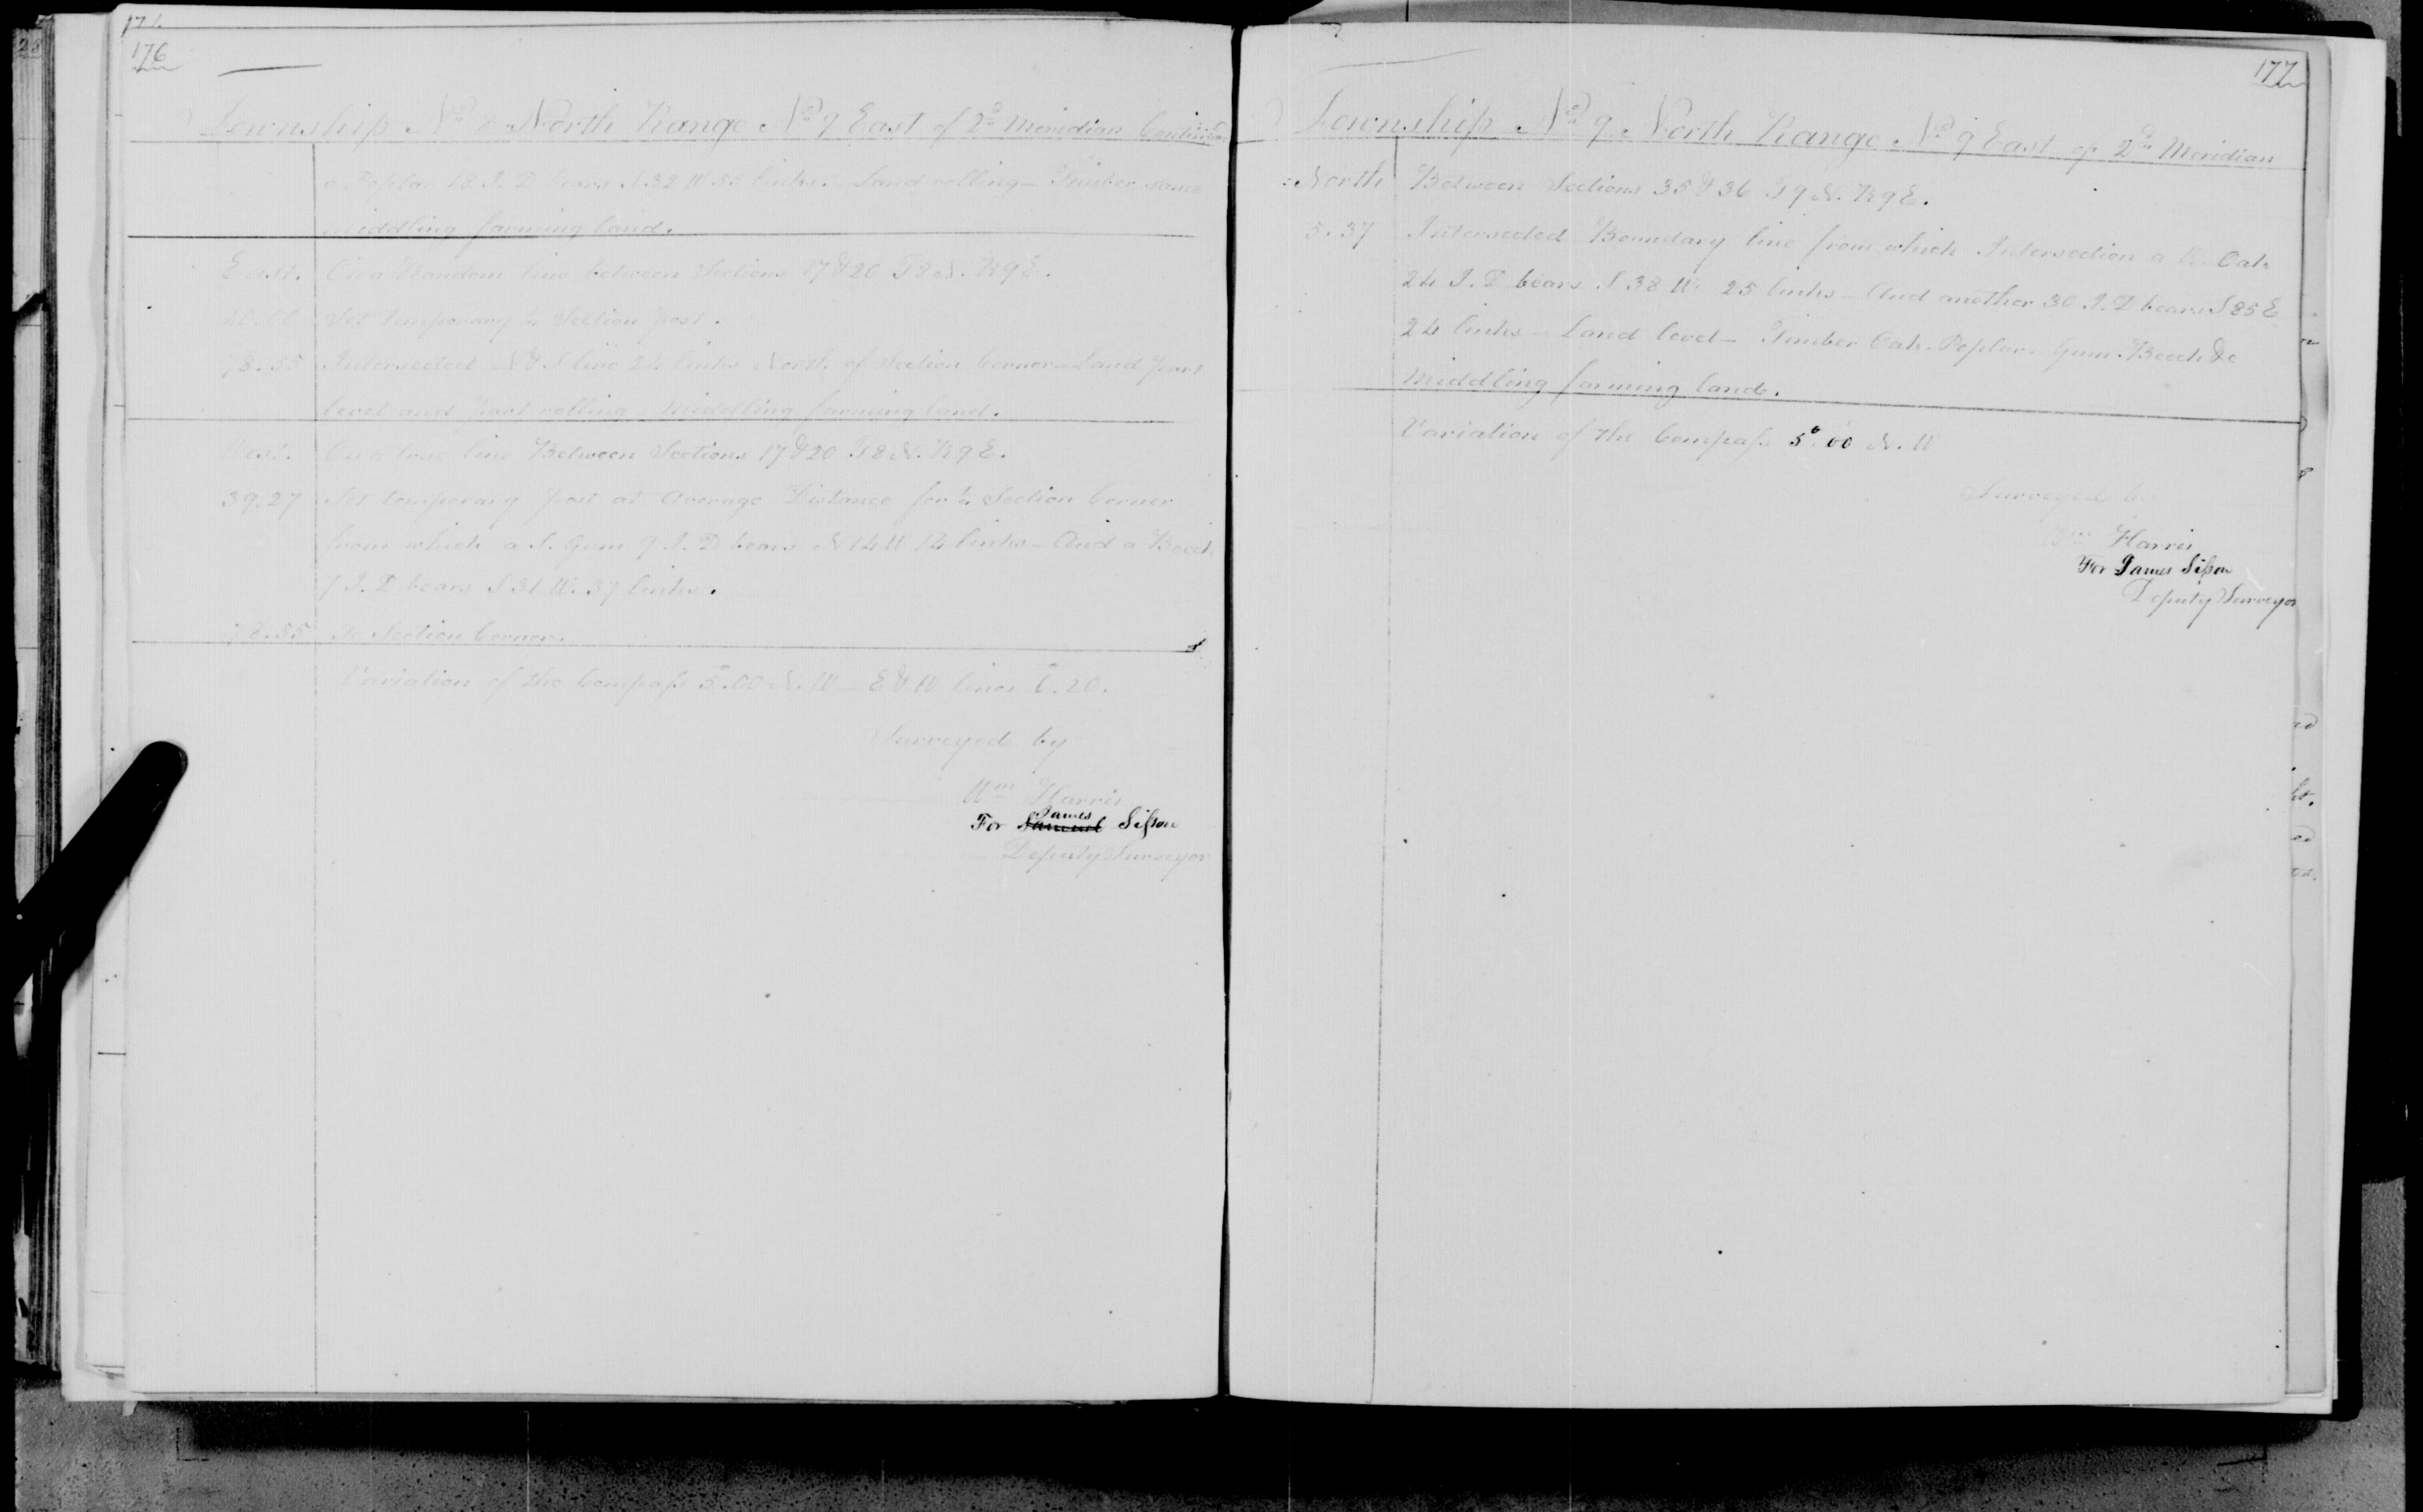 176
Township No 8 North Range No 9 East of 2d Meridian Continued
a Poplar 18 I. D bears N 32 W 55 links. Land rolling - Timber same
middling farming land.
East. On a Random line between Sections 17 & 20 T 8 N. R 9 E.
40.00 Set temporary ¼ Section post.
78.55 Intersected N & S line 24 links North of Section Corner - Land part
level and part rolling - Middling farming land.
West. On a true line Between Sections 17 & 20 T 8 N. R 9 E.
39.27 Set temporary post at Average Distance for ¼ Section Corner
from which a S. Gum 9 I. D bears N 14 W 14 links - And a Beech
7 I. D bears S 31 W. 37 links.
78.55 To Section Corner.
Variation of the Compass 5°.00 N. W - E & W lines 5°.20.
Surveyed by
Wm Harris
James
For Samuel Sisson
Deputy Surveyor
177
Township No 9 North Range No 9 East of 2d Meridian
North Between Sections 35 & 36 T 9 N. R 9 E.
5.37 Intersected Boundary line from which Intersection a W. Oak
24 I. D bears S 38 W. 25 links - And another 30 I. D bears S 85 E
24 links - Land level - Timber Oak. Poplar. Gum. Beech &c
Middling farming land.
Variation of the Compass 5°.00 N. W
Surveyed by
Wm Harris
For James Sisson
Deputy Surveyor